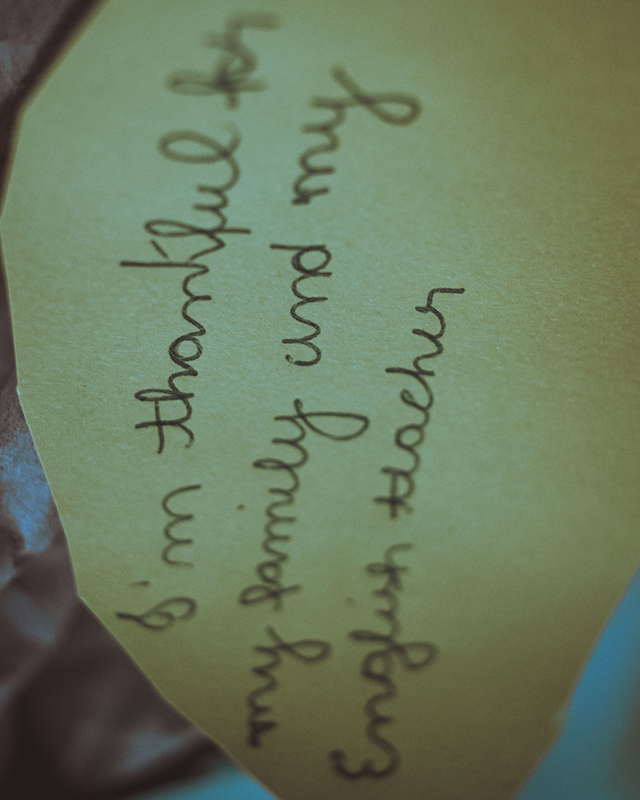 I'm thankful for
my family and my
English teacher